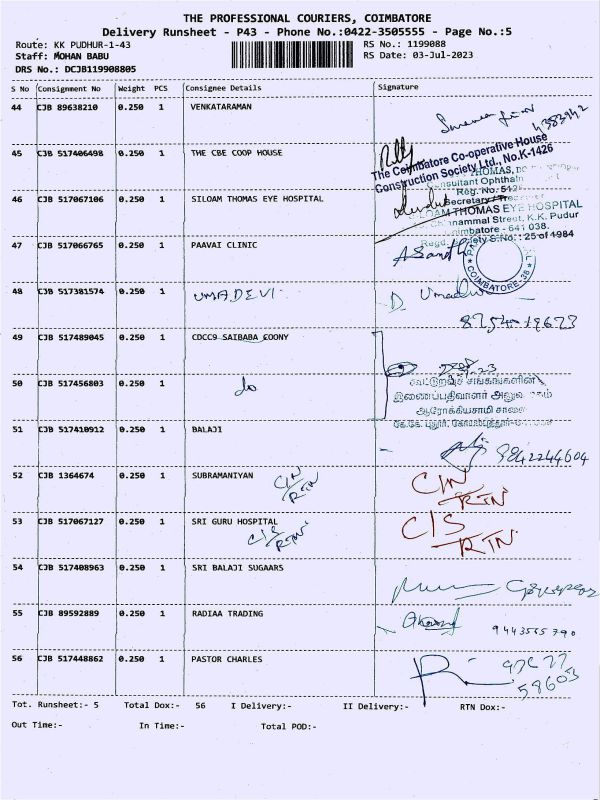 THE PROFESSIONAL COURIERS, COIMBATORE
Delivery Runsheet - P43 - Phone No.:0422-3505555 - Page No.:5
Route: KK PUDHUR-1-43 RS No.: 1199088
Staff: MOHAN BABU RS Date: 03-Jul-2023
DRS No.: DCJB119908805
S No Consignment No Weight PCS Consignee Details Signature
44 CJB 89638210 0.250 1 VENKATARAMAN
45 CJB 517406498 0.250 1 THE CBE COOP HOUSE
The Coimbatore Co-operative House
Construction Society Ltd., No.K-1426
THOMAS,
Consultant Ophthalm
Reg. No:
Secretary
46 CJB 517067106 0.250 1 SILOAM THOMAS EYE HOSPITAL
SILOAM THOMAS EYE HOSPITAL
Street, K.K. Pudur
Coimbatore - 641 038.
Regd. Society S.No.: 25 of 1984
47 CJB 517066765 0.250 1 PAAVAI CLINIC
COIMBATORE-38
48 CJB 517381574 0.250 1 UMADEVI D Umadevi
8754019673
49 CJB 517489045 0.250 1 CDCC9 SAIBABA COONY
50 CJB 517456803 0.250 1 do
கூட்டுறவுச் சங்கங்களின்
இணைப்பதிவாளர்
ஆரோக்கியசாமி சாலை
கே.கே. புதூர்,
51 CJB 517410912 0.250 1 BALAJI
9842244604
52 CJB 1364674 0.250 1 SUBRAMANIYAN C/N RTN C/N RTN
53 CJB 517067127 0.250 1 SRI GURU HOSPITAL C/S RTN C/S RTN
54 CJB 517408963 0.250 1 SRI BALAJI SUGAARS
55 CJB 89592889 0.250 1 RADIAA TRADING
9443565790
56 CJB 517448862 0.250 1 PASTOR CHARLES
58603
Tot. Runsheet:- 5 Total Dox:- 56 I Delivery:- II Delivery:- RTN Dox:-
Out Time:- In Time:- Total POD:-